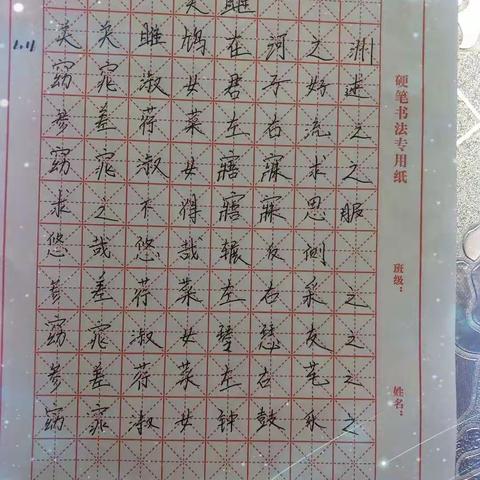 关雎
1.11
关关雎鸠在河之洲
窈窕淑女君子好逑
参差荇菜左右流之
窈窕淑女寤寐求之
求之不得寤寐思服
悠哉悠哉辗反侧
参差荇菜左右采之
窈窕淑女琴瑟友之
参差荇菜左右芼之
窈窕淑女钟鼓乐之
硬笔书法专用纸
班级：
姓名：